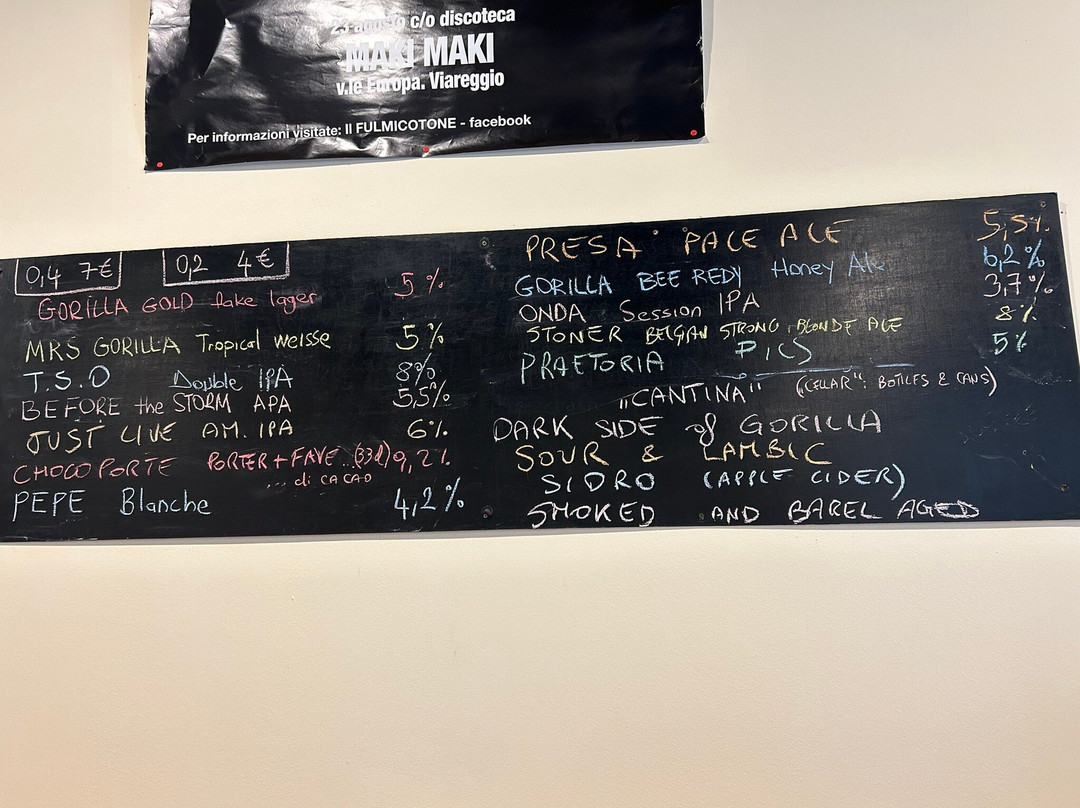 23 agosto c/o discoteca
MAKI MAKI
v.le Europa. Viareggio
Per informazioni visitate: Il FULMICOTONE - facebook
0,4 7€ 0,2 4€
GORILLA GOLD fake lager 5%
MRS GORILLA Tropical weisse 5%
T.S.O Double IPA 8%
BEFORE the STORM APA 5,5%
JUST LIVE AM. IPA 6%
CHOCOPORTE PORTER + FAVE (33l) 9,2%
... di CACAO
PEPE Blanche 4,2%
PRESA PALE ALE 5,5%
GORILLA BEE REDY Honey Ale 6,2%
ONDA Session IPA 3,7%
STONER BELGIAN STRONG BLONDE ALE 8%
PRAETORIA PILS 5%
"CANTINA" ("CELLAR": BOTTLES & CANS)
DARK SIDE of GORILLA
SOUR & LAMBIC
SIDRO (APPLE CIDER)
SMOKED AND BAREL AGED